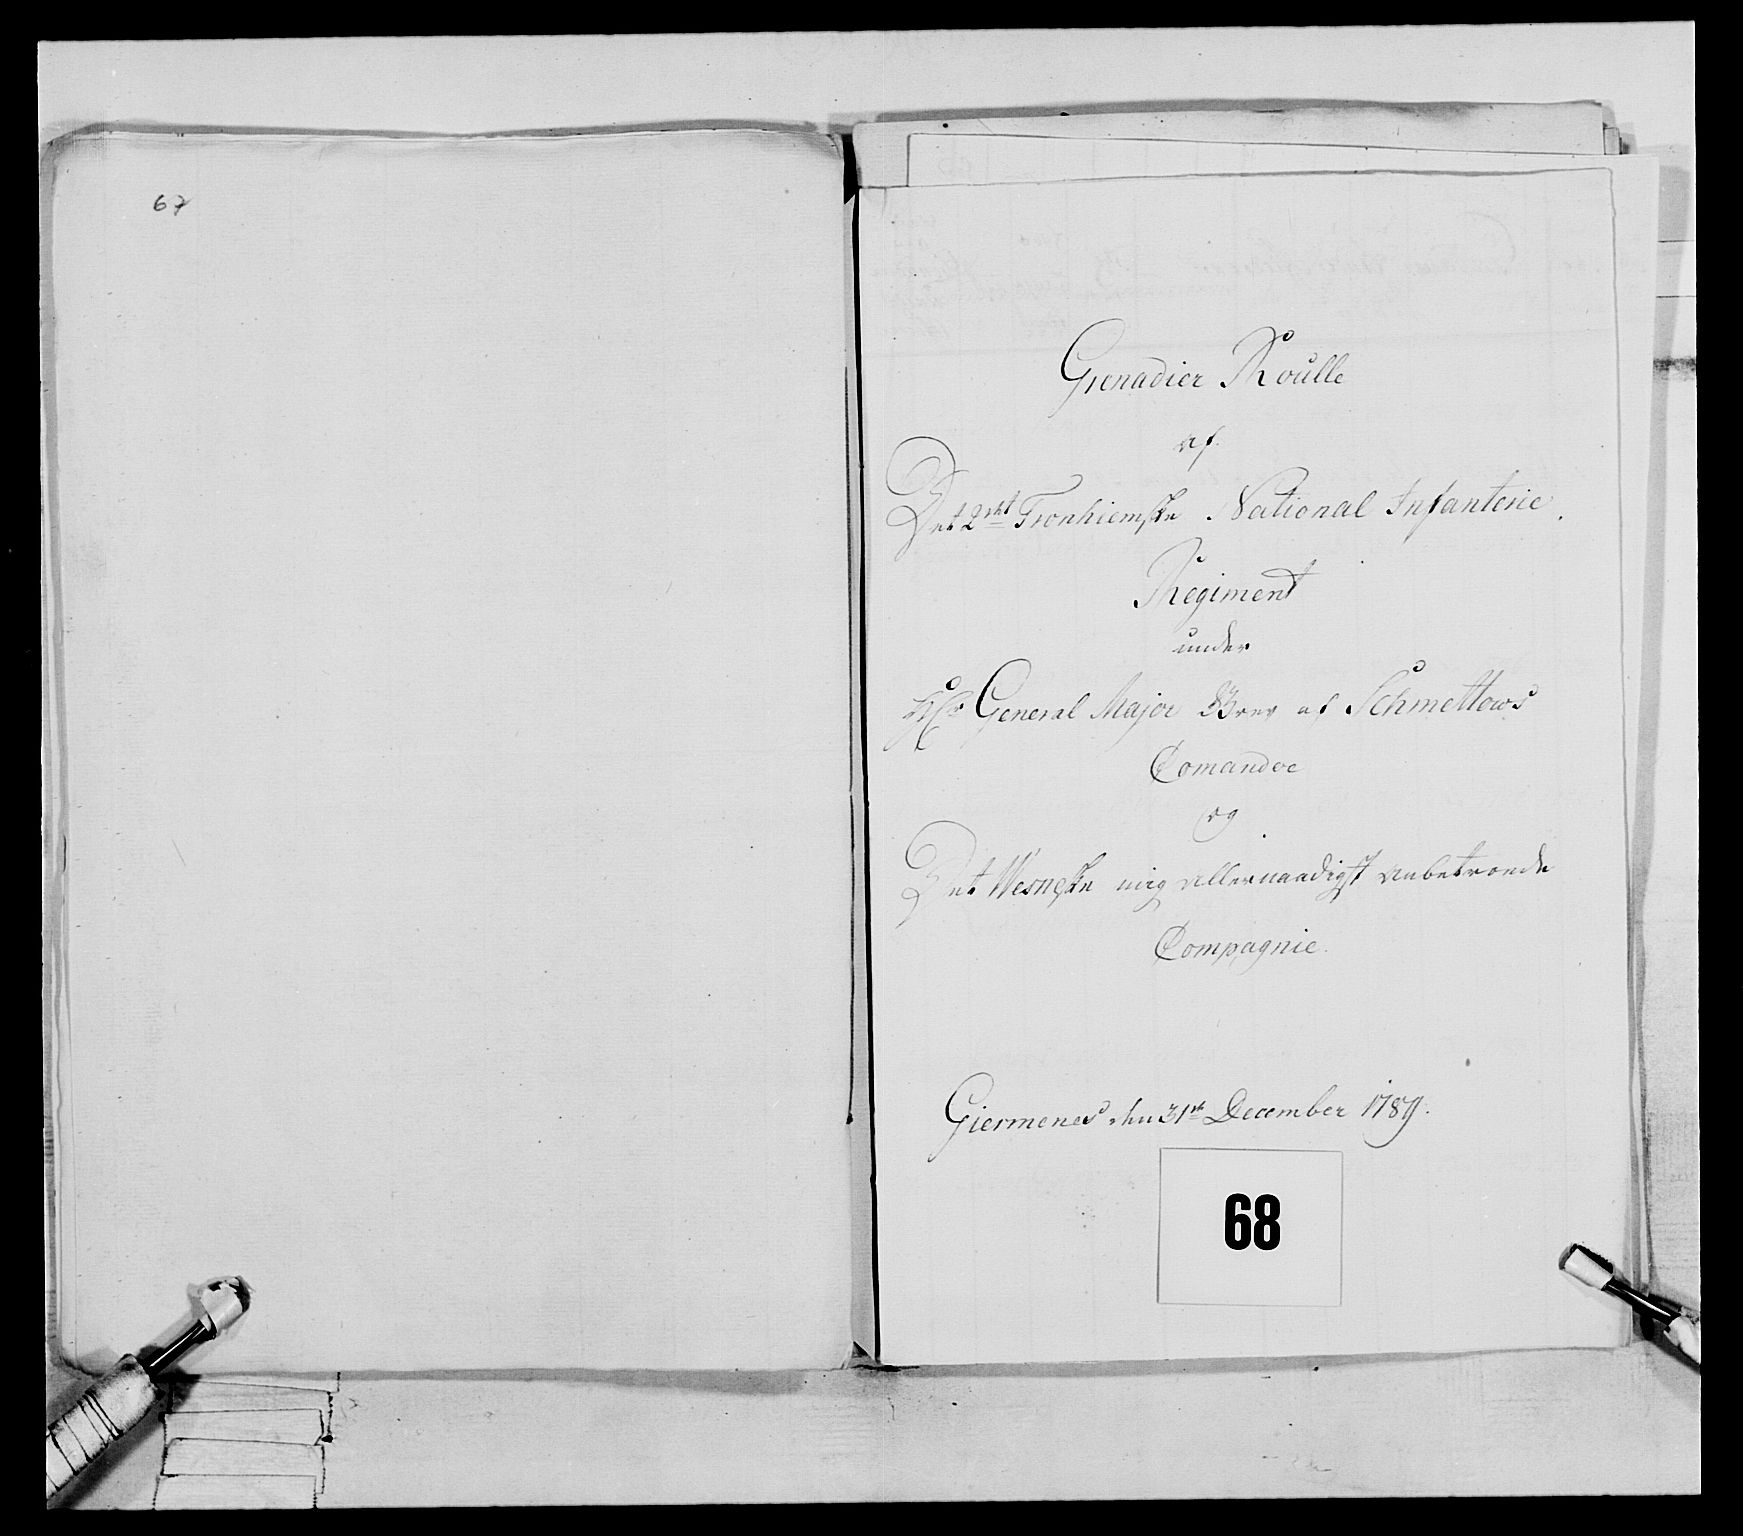 67
Grenadier Roulle
af
Det 2det Tronhiemske National Infanterie
Regiment
under
Hr General Major Grev af Schmettows
Comandoe
og
Det Werneske mig allernaadigst anbetroede
Compagnie.
Giermenes den 31te December 1789.
68